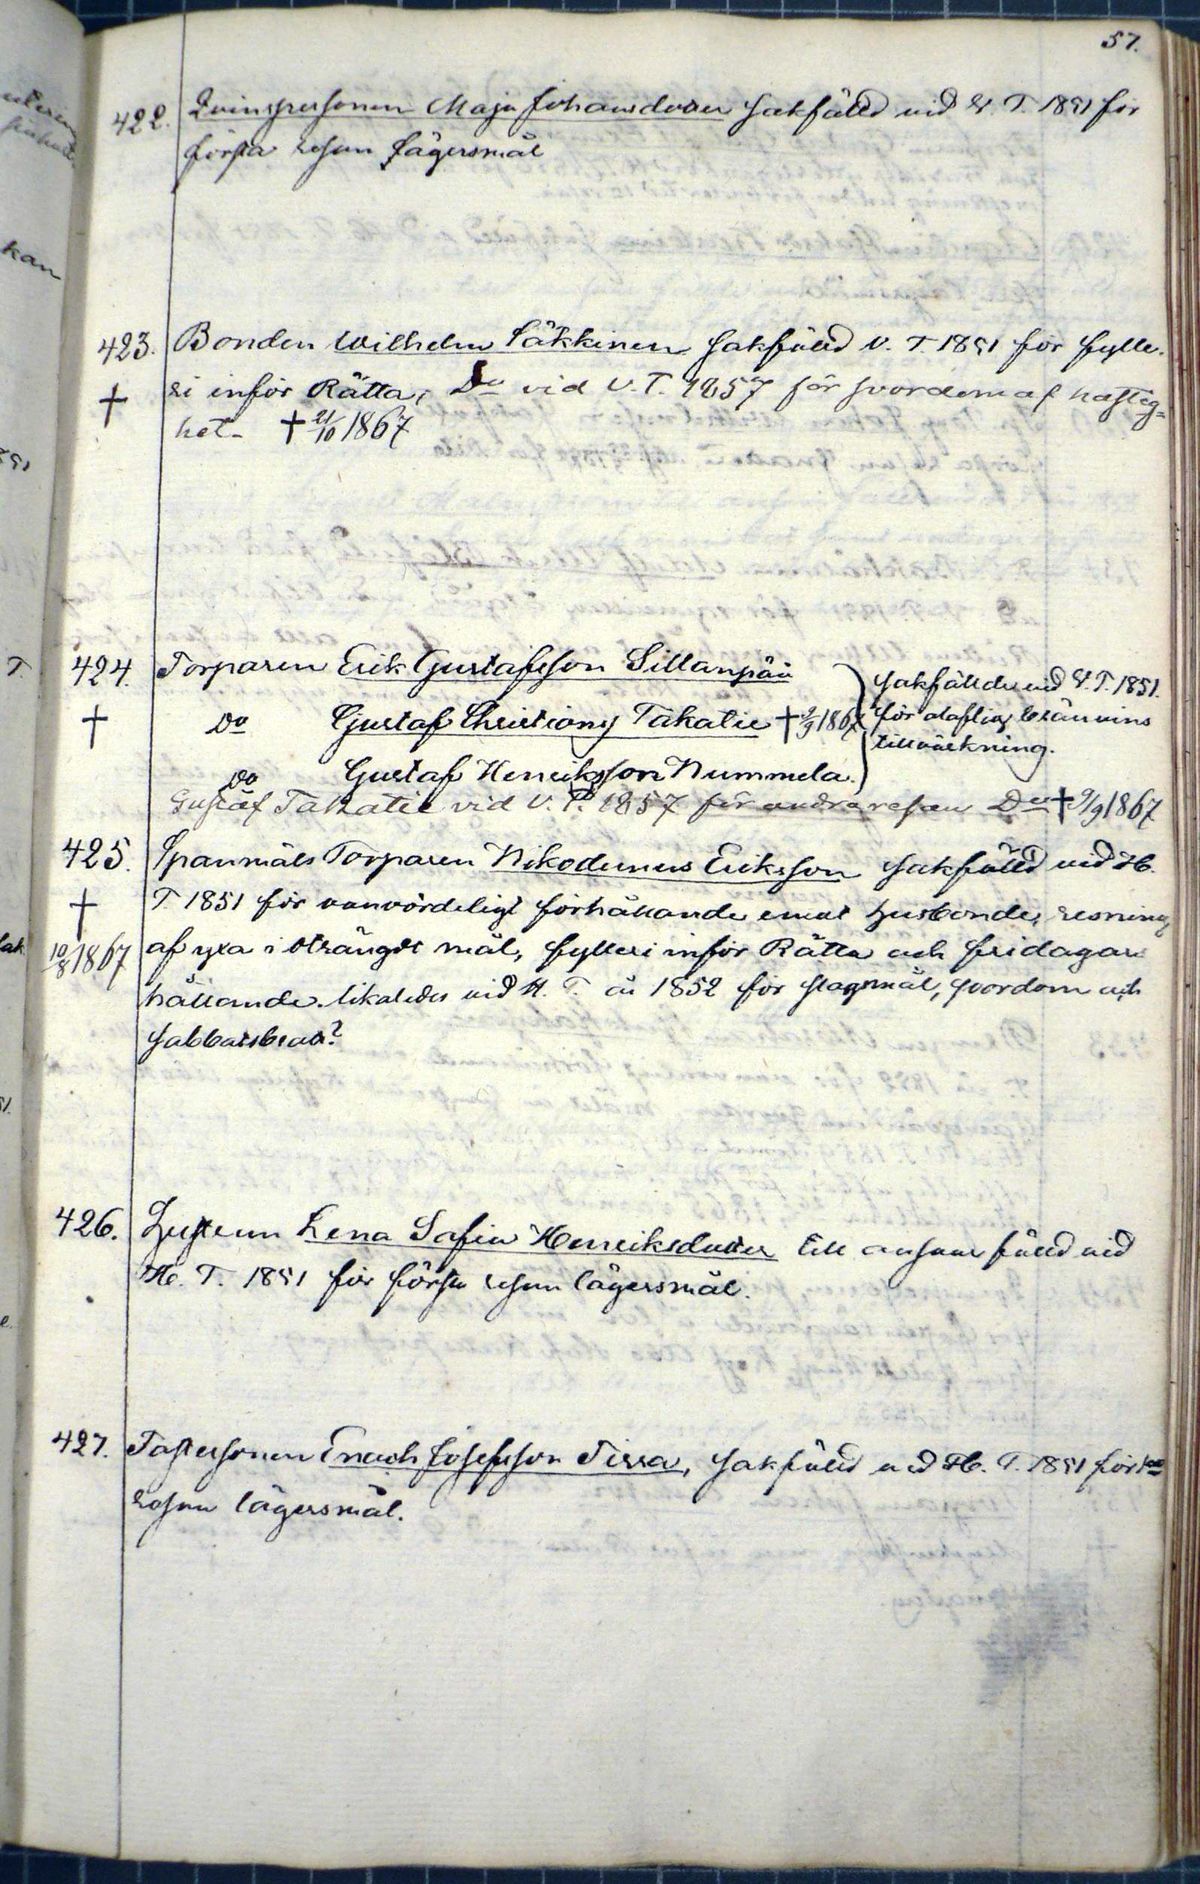 57.
422. Qvinspersonen Maja Johansdotter sakfälld vid V. T. 1851 för
första resan Lägersmål
423. Bonden Wilhelm Säkkinen sakfälld V. T. 1851 för fylle-
ri inför Rätta, Do vid V. T. 1857 för svordom af hastig=
het. † 21/10 1867
424. Torparen Erik Gustafsson Sillanpää
† Do Gustaf Christians Takatie † 9/9 1867
Do Gustaf Henriksson Nummela.
sakfällde vid V. T. 1851.
för olaflig bränvins
tillvärkning.
Gustaf Takatie vid V. T. 1857 för andra resan Do † 9/9 1867
425. Spanmåls Torparen Nikodemus Eriksson sakfälld vid H.
† T 1851 för vanvördeligt förhållande emot husbonde, resning
10/8 1867 af yxa i oträngdt mål, fylleri inför Rätta och fridagars
hållande. likaledes vid H. T. år 1852 för slagsmål, svordom och
sabbatsbrott?
426. Hustrun Lena Sofia Henriksdotter till ansvar fälld vid
H. T. 1851 för första resan lägersmål.
427. Enoch Josefsson Tirra, sakfälld vid H. T. 1851 för 1sta
resan lägersmål.
kan
T.